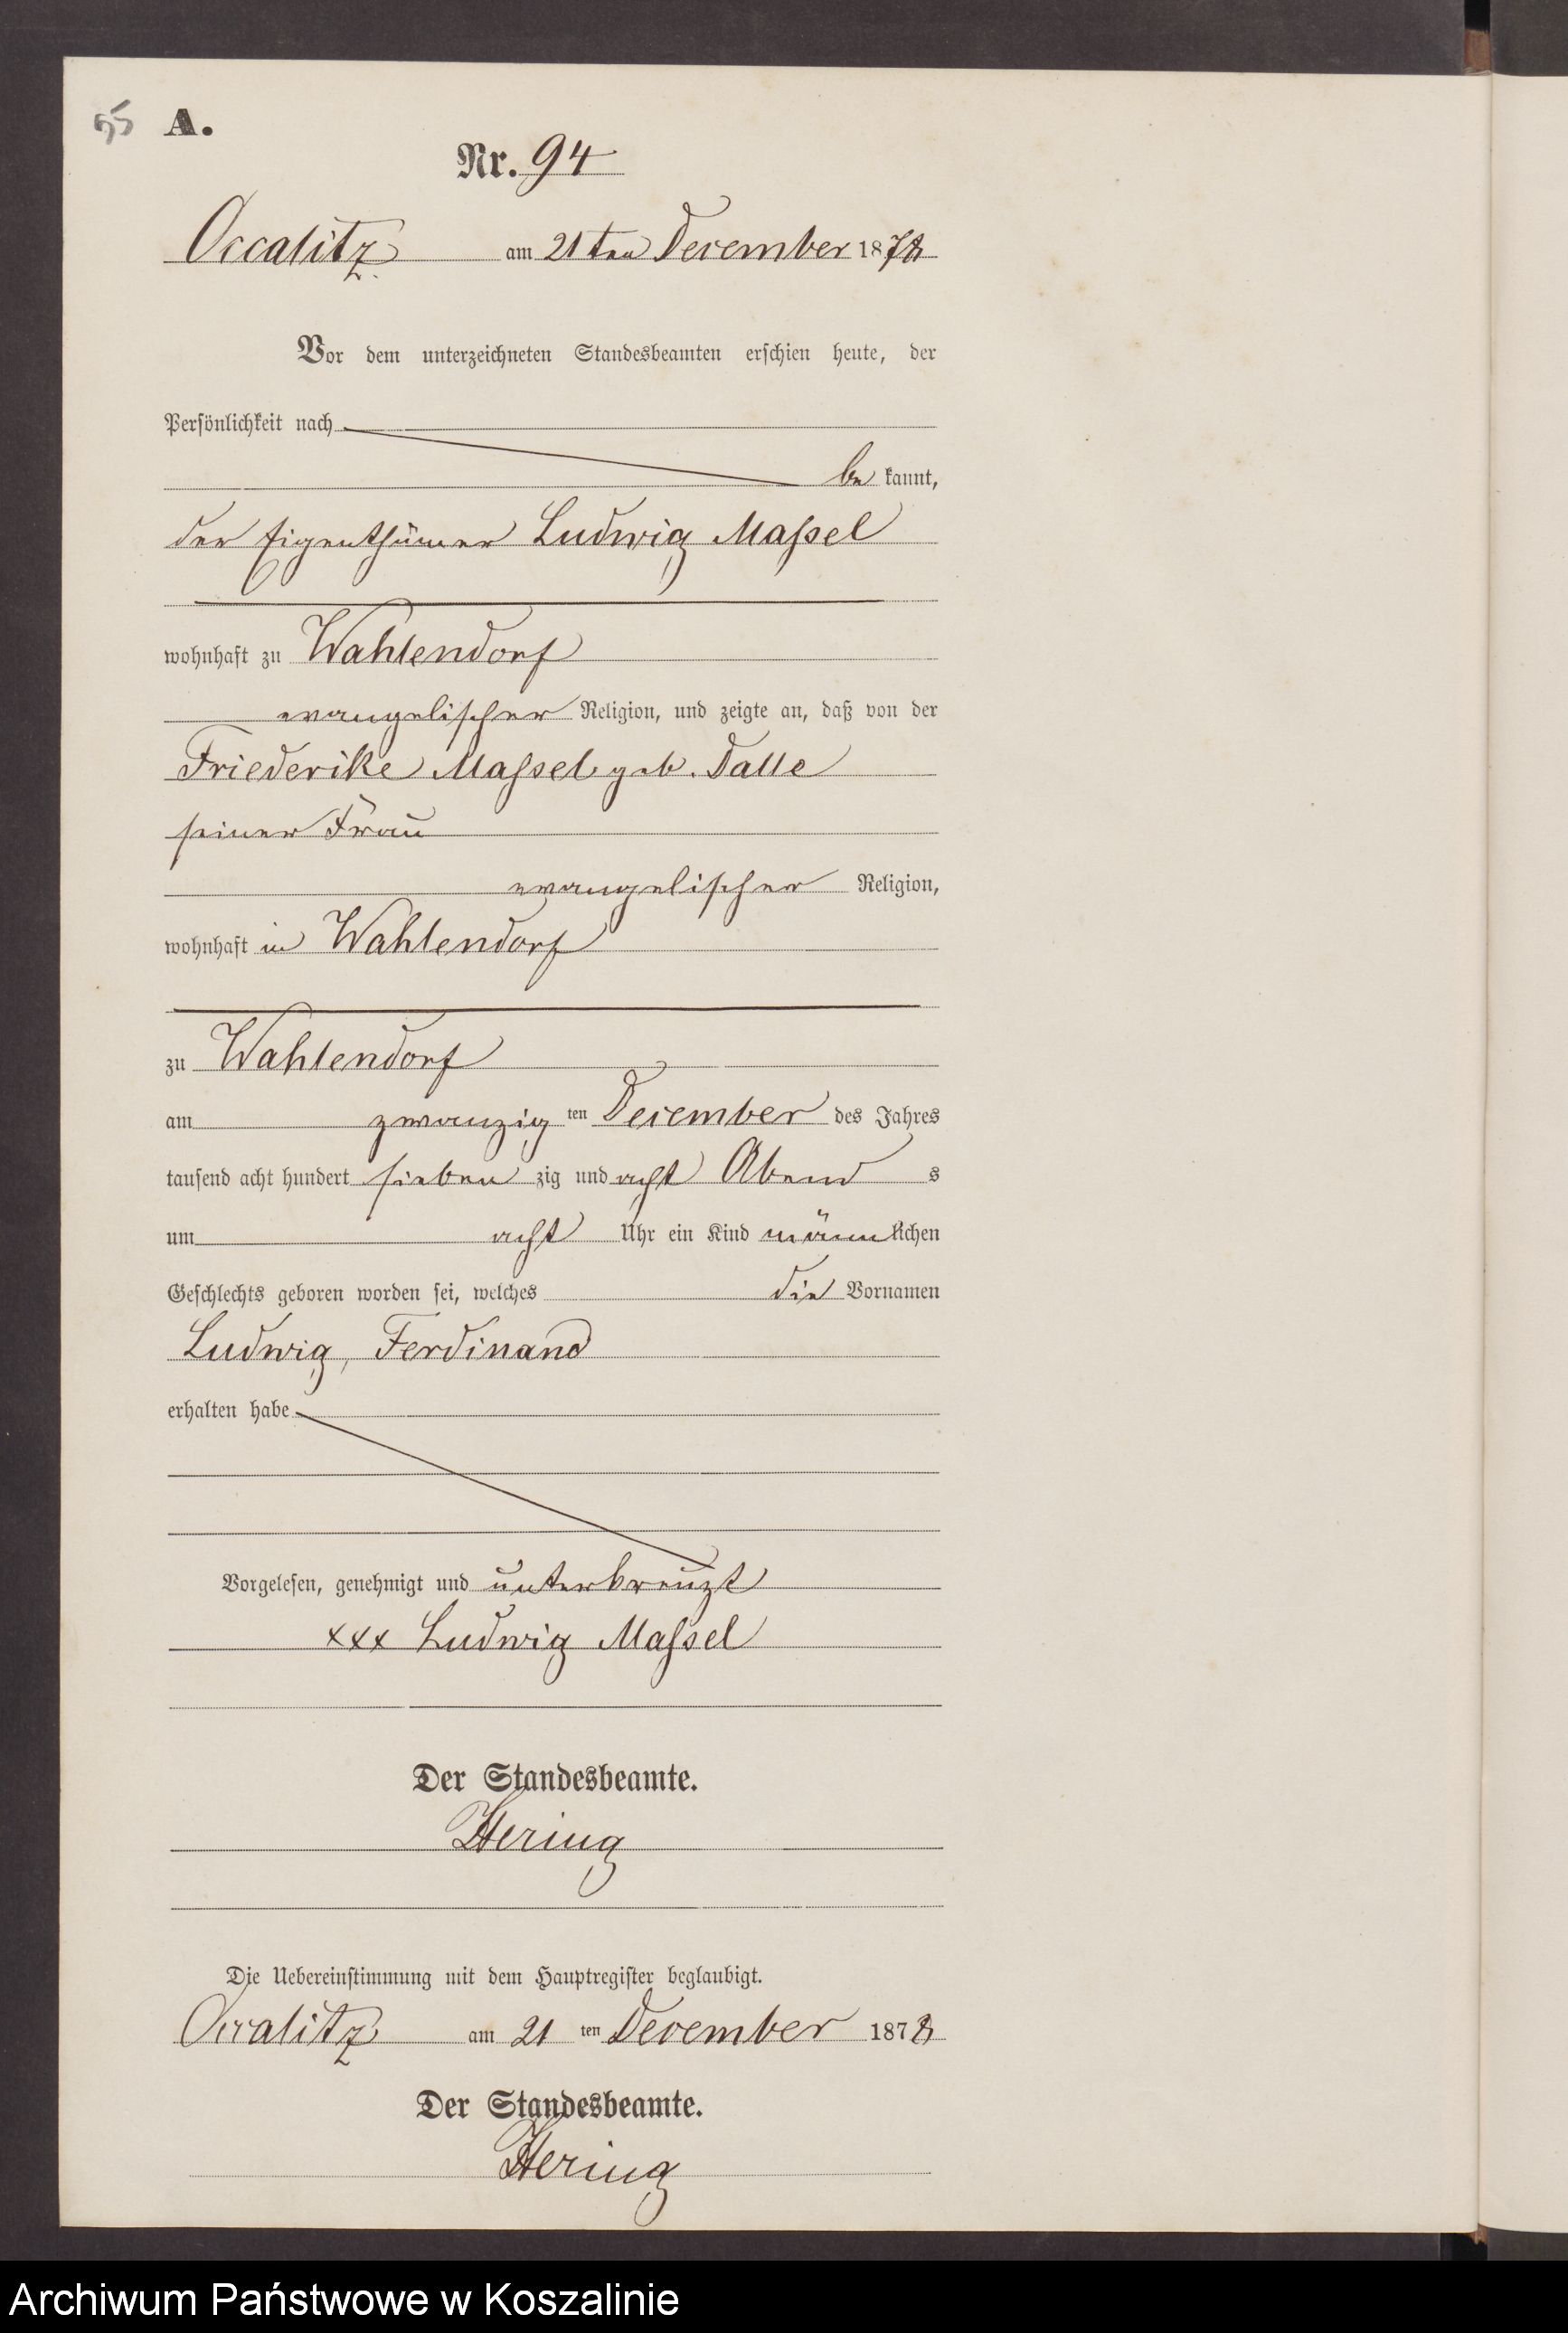 55 A.
Nr. 94
Occalitz am 21ten December 1878
Vor dem unterzeichneten Standesbeamten erschien heute, der
Persönlichkeit nach
be kannt,
der Eigenthümer Ludwig Maßel
wohnhaft zu Wahlendorf
evangelischer Religion, und zeigte an, daß von der
Friederike Maßel geb. Dalle
seiner Frau
evangelischer Religion,
wohnhaft in Wahlendorf
zu Wahlendorf
am zwanzig ten December des Jahres
tausend acht hundert sieben zig und acht Abend s
um acht Uhr ein Kind männlichen
Geschlechts geboren worden sei, welches die Vornamen
Ludwig, Ferdinand
erhalten habe
Vorgelesen, genehmigt und unterkreuzt
xxx Ludwig Maßel
Der Standesbeamte.
Hering
Die Uebereinstimmung mit dem Hauptregister beglaubigt.
Occalitz am 21 ten December 1878
Der Standesbeamte.
Hering
Archiwum Państwowe w Koszalinie